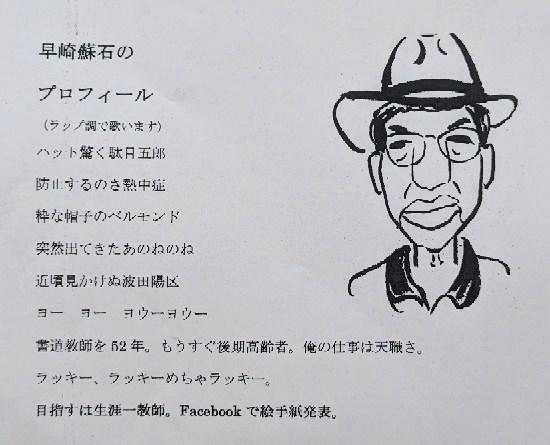 早崎蘇石の
プロフィール
（ラップ調で歌います）
ハット驚く駄目五郎
防止するのさ熱中症
粋な帽子のベルモンド
突然出てきたあのねのね
近頃見かけぬ波田陽区
ヨー　ヨー　ヨウーヨウー
書道教師を52年。もうすぐ後期高齢者。俺の仕事は天職さ。
ラッキー、ラッキーめちゃラッキー。
目指すは生涯一教師。Facebookで絵手紙発表。